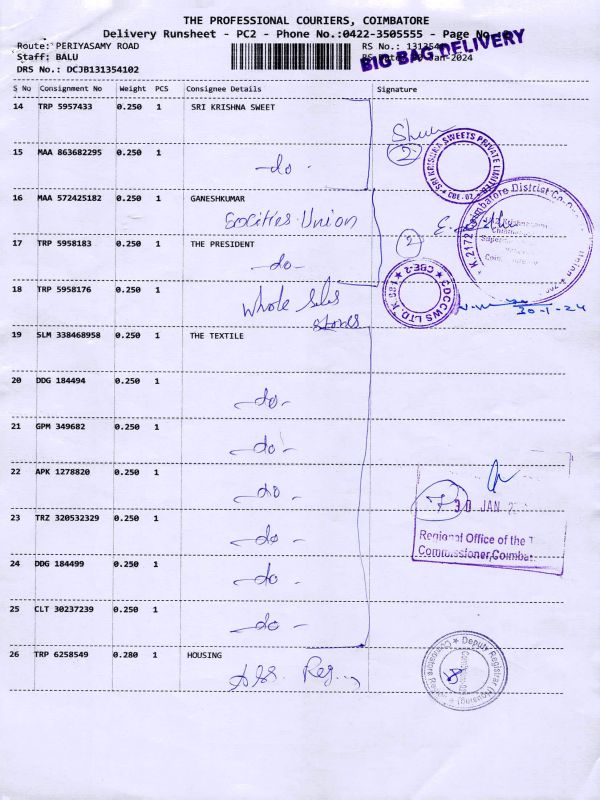 THE PROFESSIONAL COURIERS, COIMBATORE
Delivery Runsheet - PC2 - Phone No.:0422-3505555 - Page No
BIG BAG DELIVERY
Route: PERIYASAMY ROAD
RS No.: 1313541
Staff: BALU
Jan-2024
DRS No.: DCJB131354102
S No Consignment No Weight PCS Consignee Details Signature
14 TRP 5957433 0.250 1 SRI KRISHNA SWEET
2
SRI KRISHNA SWEETS PRIVATE LIMITED
CBE-02
15 MAA 863682295 0.250 1
-do-
16 MAA 572425182 0.250 1 GANESHKUMAR
Socities Union
K. 2172 Coimbatore District Co-op
Union
17 TRP 5958183 0.250 1 THE PRESIDENT
2
-do-
18 TRP 5958176 0.250 1
CDCCWS LTD. K 661 CBE-2
Whole sales
stores
30-1-24
19 SLM 338468958 0.250 1 THE TEXTILE
20 DDG 184494 0.250 1
-do-
21 GPM 349682 0.250 1
-do-
22 APK 1278820 0.250 1
-do-
7
30 JAN
23 TRZ 320532329 0.250 1
-do-
Regional Office of the T
Commissioner, Coimba
24 DDG 184499 0.250 1
-do-
25 CLT 30237239 0.250 1
-do-
26 TRP 6258549 0.280 1 HOUSING
Reg
Deputy Registrar (Housing)